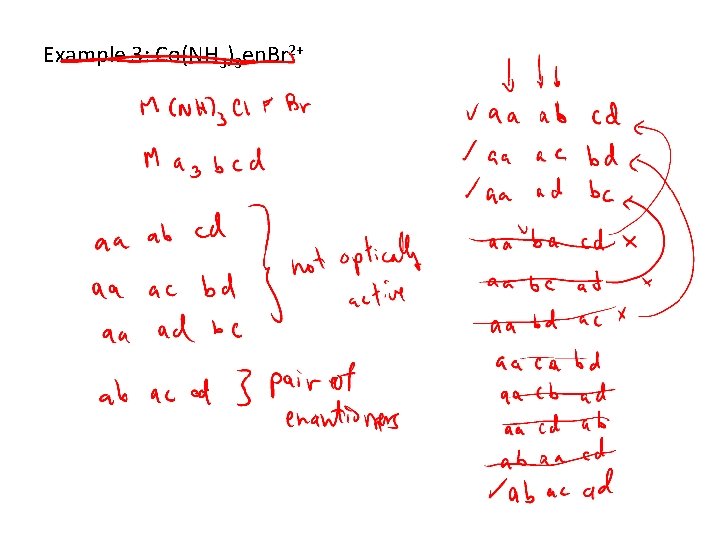 Example 3: Co(NH3)3en.Br2+
M (NH)3 Cl F Br
M a3 b c d
aa ab cd
aa ac bd
aa ad bc
not optically
active
ab ac ad } pair of
enantiomers
✓ aa ab cd
✓ aa ac bd
✓ aa ad bc
aa ba cd x
aa bc ad x
aa bd ac x
aa ca bd
aa cb ad
aa cd ab
ab aa cd
✓ ab ac ad